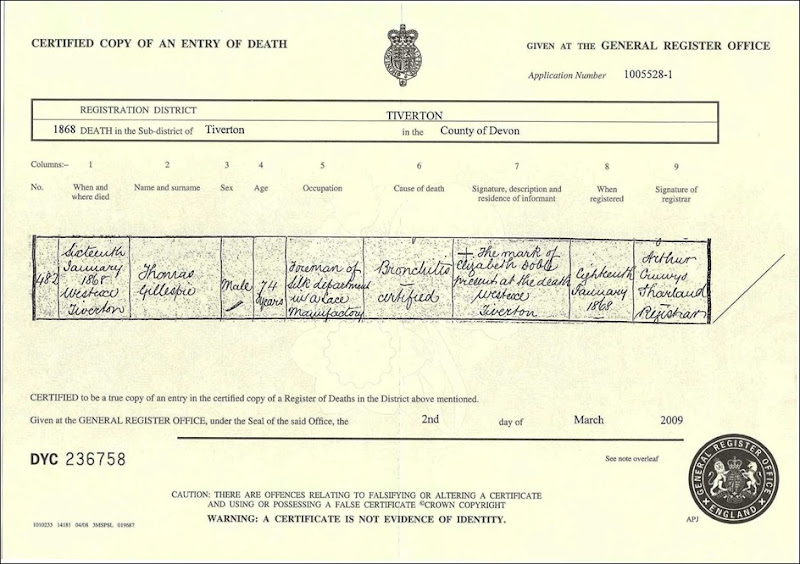 CERTIFIED COPY OF AN ENTRY OF DEATH
GIVEN AT THE GENERAL REGISTER OFFICE
Application Number 1005528-1
REGISTRATION DISTRICT
TIVERTON
1868 DEATH in the Sub-district of Tiverton in the County of Devon
Columns:- 1 2 3 4 5 6 7 8 9
No. When and where died Name and surname Sex Age Occupation Cause of death Signature, description and residence of informant When registered Signature of registrar
482
Sixteenth
January
1868
Westexe
Tiverton
Thomas
Gillespie
Male
74
years
Foreman of
Silk department
in a Lace
Manufactory
Bronchitis
certified
The mark of
Elizabeth
present at the death
Westexe
Tiverton
Eighteenth
January
1868
Arthur
Cruwys
Sharland
Registrar
CERTIFIED to be a true copy of an entry in the certified copy of a Register of Deaths in the District above mentioned.
Given at the GENERAL REGISTER OFFICE, under the Seal of the said Office, the 2nd day of March 2009
DYC 236758
See note overleaf
GENERAL REGISTER OFFICE
ENGLAND
CAUTION: THERE ARE OFFENCES RELATING TO FALSIFYING OR ALTERING A CERTIFICATE
AND USING OR POSSESSING A FALSE CERTIFICATE ©CROWN COPYRIGHT
WARNING: A CERTIFICATE IS NOT EVIDENCE OF IDENTITY.
1010233 14181 04/08 3MSPSL 019687
APJ